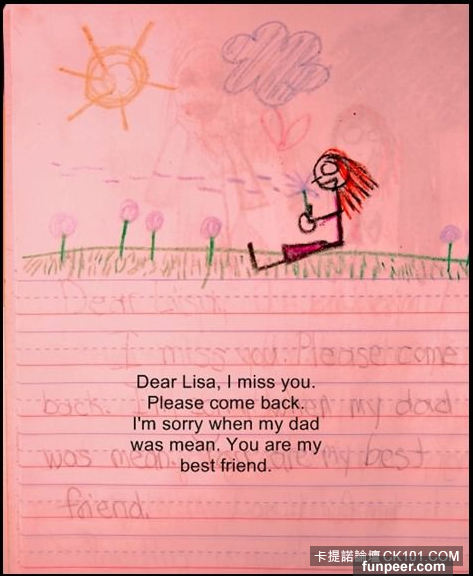 Dear Lisa,
I miss you. Please come
back. my dad
was mean. are my best
friend.
Dear Lisa, I miss you.
Please come back.
I'm sorry when my dad
was mean. You are my
best friend.
卡提諾論壇 CK101.COM
funpeer.com